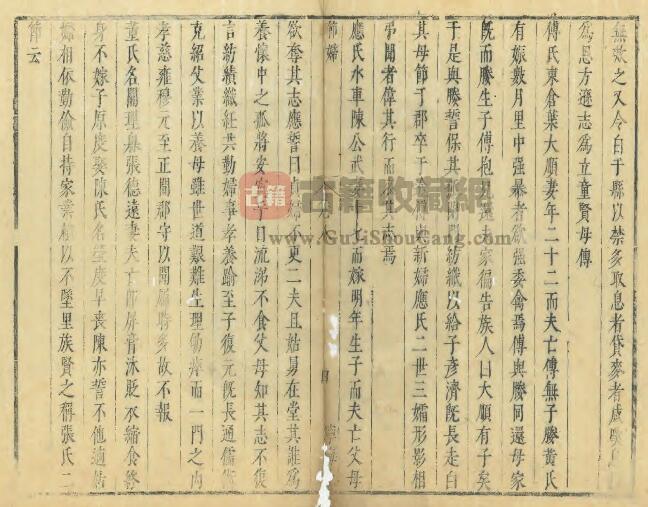 無欺之又令白于縣以禁多取息者貸麥者咸
為思方遜志為立童賢母傳
傅氏東倉葉大順妻年二十二而夫亡傅無子媵黃氏
有娠數月里中強暴者欲強委禽焉傅與媵同還母家
旣而媵生子傅抱還夫家徧告族人曰大順有子矣
于是與媵誓保其孤閉門紡織以給子彥濟旣長走白
其母節于郡卒于新婦應氏二世三孀形影相
弔聞者偉其行而其志焉
節婦
應氏水車陳公武妻十七而嫁明年生子而夫亡父母
欲奪其志應誓曰婦不更二夫且姑舅在堂其誰為
養懷中之孤將安日流涕不食父母知其志不復
言紡績織紝共勤婦事孝養踰至子復元旣長通儒
克紹父業以養母雖世道艱難生理而一門之內
孝慈雍穆元至正間郡守以聞屬時多故不報
董氏名閏理阜張德遠妻夫亡
身不嫁子原度娶陳氏名瑩度早喪陳亦誓不他適姑
婦相依勤儉自持家業以不墜里族賢之稱張氏二
節云
古籍
古籍收藏網
www.GuJiShouCang.com